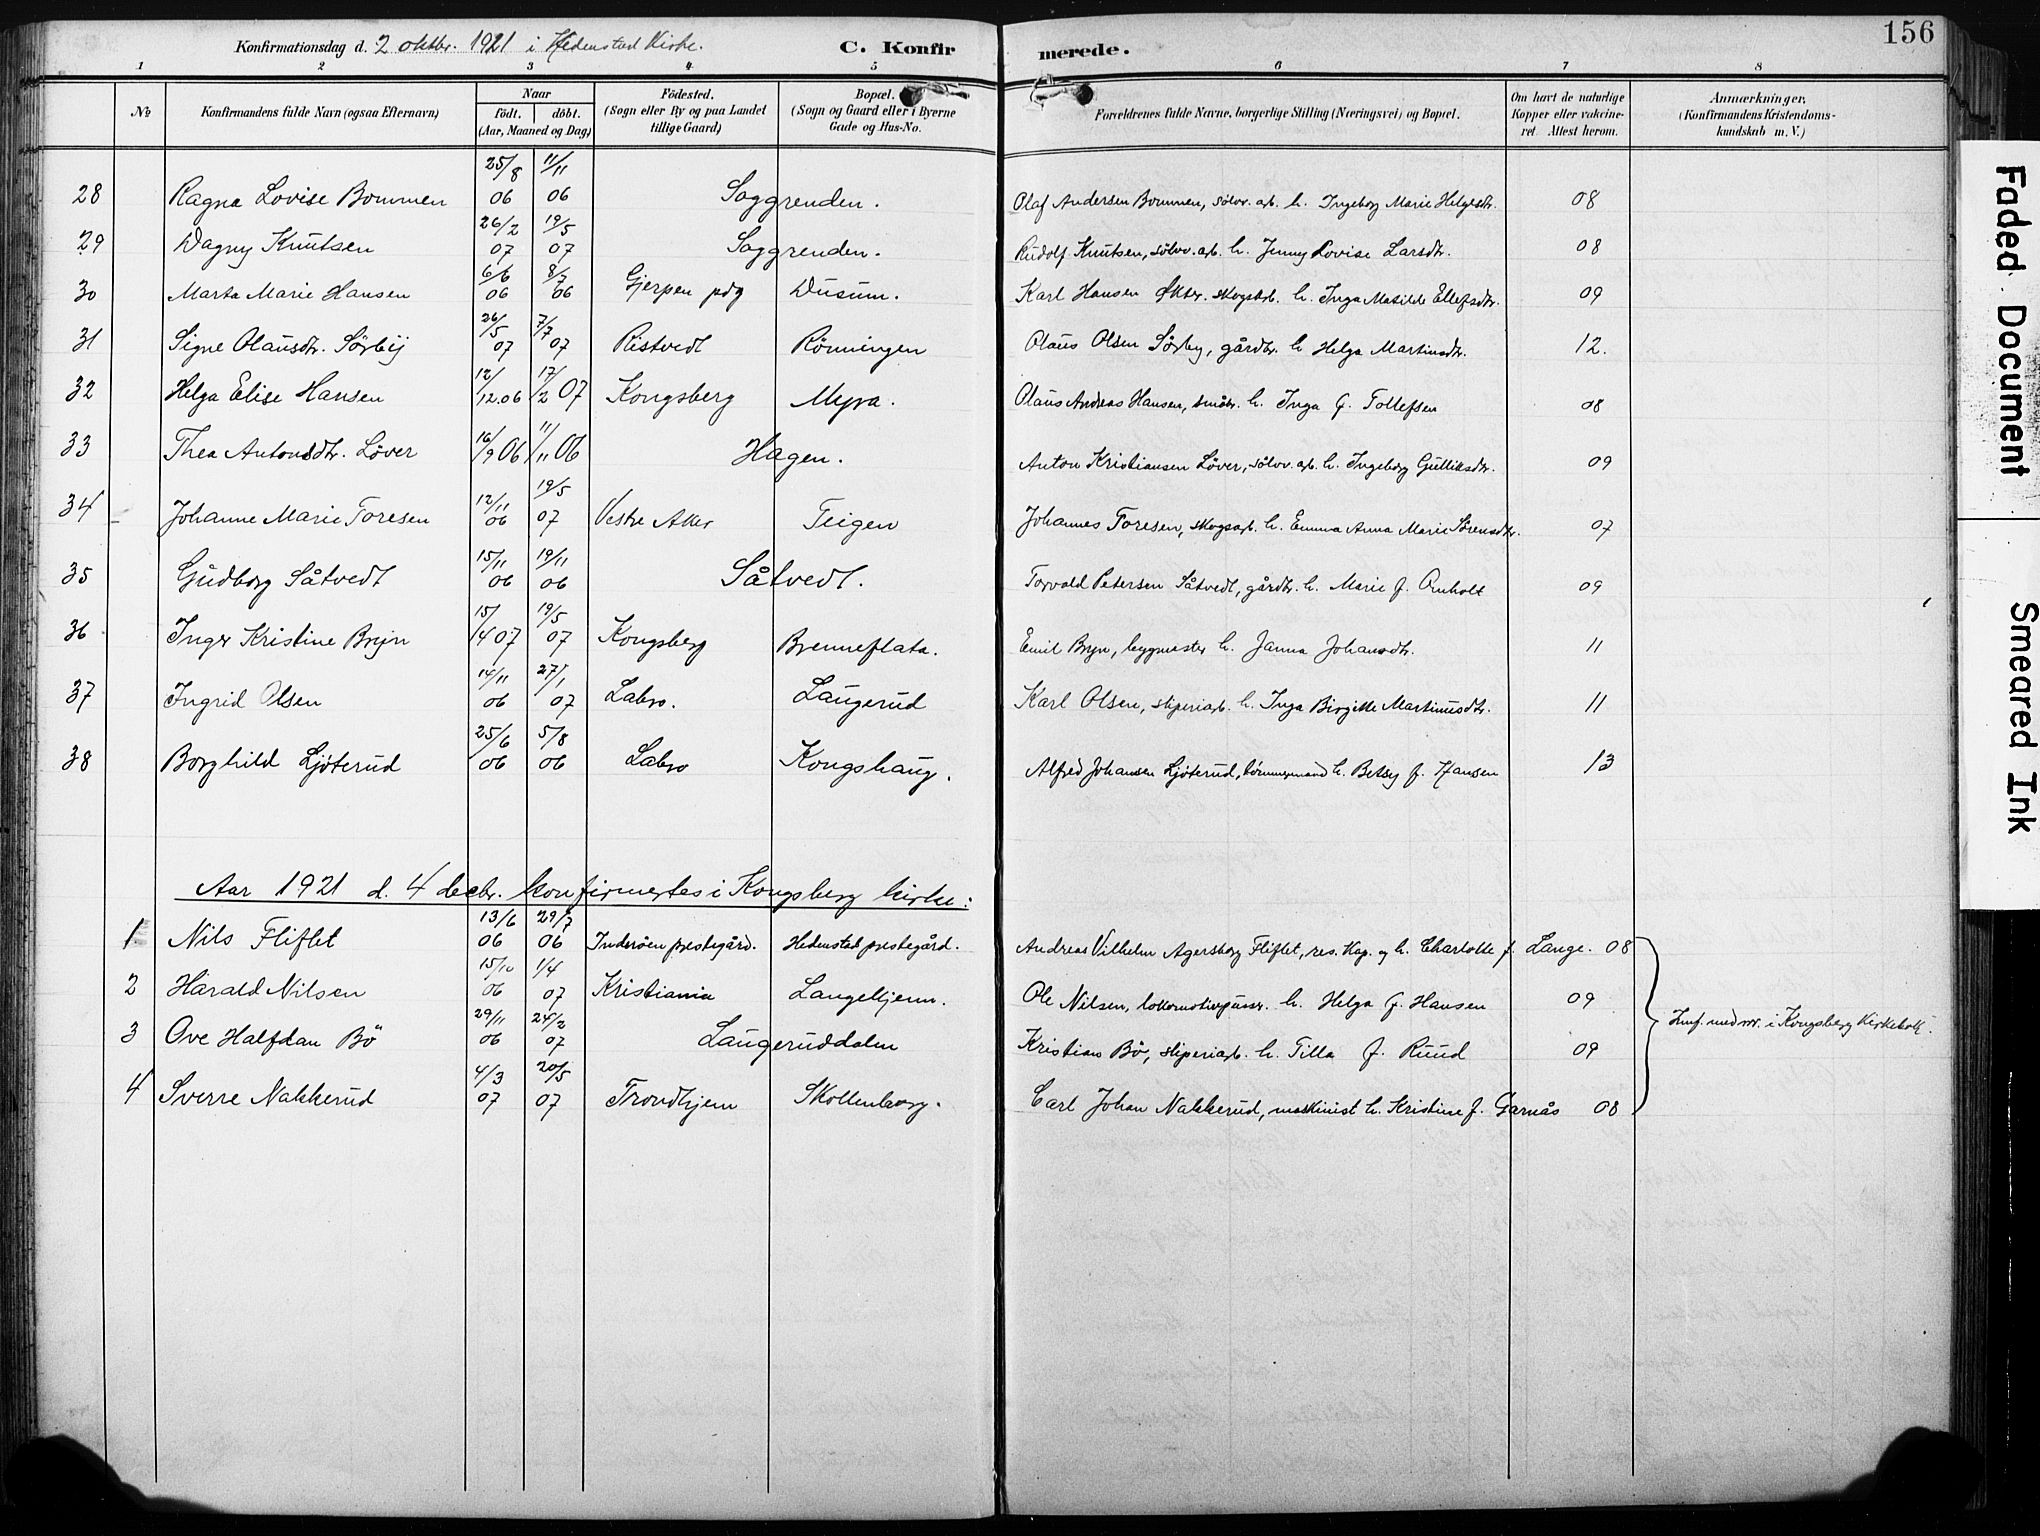 156
Konfirmationsdag d. 2 oktbr. 1921 i Hedenstad Kirke. C. Konfirmerede.
1 2 3 4 5 6 7 8
No
Konfirmandens fulde Navn (ogsaa Efternavn)
Naar
födt. döbt.
(Aar, Maaned og Dag)
Födested.
(Sogn eller By og paa Landet
tillige Gaard)
Bopæl.
(Sogn og Gaard eller i Byerne
Gade og Hus-No.
Forældrenes fulde Navne, borgerlige Stilling (Næringsvei) og Bopæl.
Om havt de naturlige
Kopper eller vakcine-
ret. Attest herom.
Anmærkninger.
(Konfirmandens Kristendoms-
kundskab m. V.)
28 Ragna Lovise Bommen 25/8 06 11/11 06 Saggrenden. Olaf Andersen Bommen, sölvv. arb. h. Ingeborg Marie Helgesdtr. 08
29 Dagny Knutsen 26/2 07 19/5 07 Saggrenden. Rudolf Knutsen, sölvv. arb. h. Jenny Lovise Larsdtr. 08
30 Marta Marie Hansen 6/6 06 8/7 06 Gjerpen pdg Dusum. Karl Hansen Økter. skogsarb. h. Inga Matilde Ellefsdtr. 09
31 Signe Olausdtr. Sörby 26/5 07 7/7 07 Ristvedt Rönningen Olaus Olsen Sörby, gårdbr. h Helga Martinsdtr. 12.
32 Helga Elise Hansen 12/12.06 17/2 07 Kongsberg Myra. Olaus Andreas Hansen, småbr. h. Inga f. Tollefsen 08
33 Thea Antonsdtr. Löver 16/9 06 11/11 06 Hagen. Anton Kristiansen Löver, sölvv. arb. h. Ingeborg Gulliksdtr. 09
34 Johanne Marie Toresen 12/11 06 19/5 07 Vestre Aker Teigen Johannes Toresen, skogsarb. h. Emma Anna Marie Sörensdtr. 07
35 Gudborg Såtvedt 15/11 06 19/11 06 Såtvedt. Torvald Petersen Såtvedt, gårdbr. h. Marie f. Omholt 09
36 Inger Kristine Bryn 15/4 07 19/5 07 Kongsberg Brenneflata. Emil Bryn, bygmester h. Janna Johansdtr. 11
37 Ingrid Olsen 14/11 06 27/1 07 Labro. Laugerud Karl Olsen, sliperiarb. h. Inga Birgitte Martinusdtr. 11
38 Borghild Ljöterud 25/6 06 5/8 06 Labro Kongshaug. Alfred Johansen Ljöterud, tömmermand h. Betsy f. Hansen 13
Aar 1921 d. 4 decbr. konfirmertes i Kongsberg kirke:
1 Nils Fliflet 13/6 06 29/7 06 Inderöen prestegård. Hedenstad prestegård. Andreas Vilhelm Agersborg Fliflet, res. Kap. og h. Charlotte f. Lange. 08
2 Harald Nilsen 15/10 06 1/4 07 Kristiania Langekjenn. Ole Nilsen, lokomotivpusser. h. Helga f. Hansen 09
3 Ove Halfdan Bö 29/11 06 24/2 07 Laugeruddalen Kristian Bö, sliperiarb. h. Tilla f. Ruud 09
4 Sverre Nakkerud 4/3 07 20/5 07 Trondhjem Skollenborg. Carl Johan Nakkerud, maskinist h. Kristine f. Garnås 08
Innf. med nr. i Kongsberg Kirkebok.
Faded Document
Smeared Ink